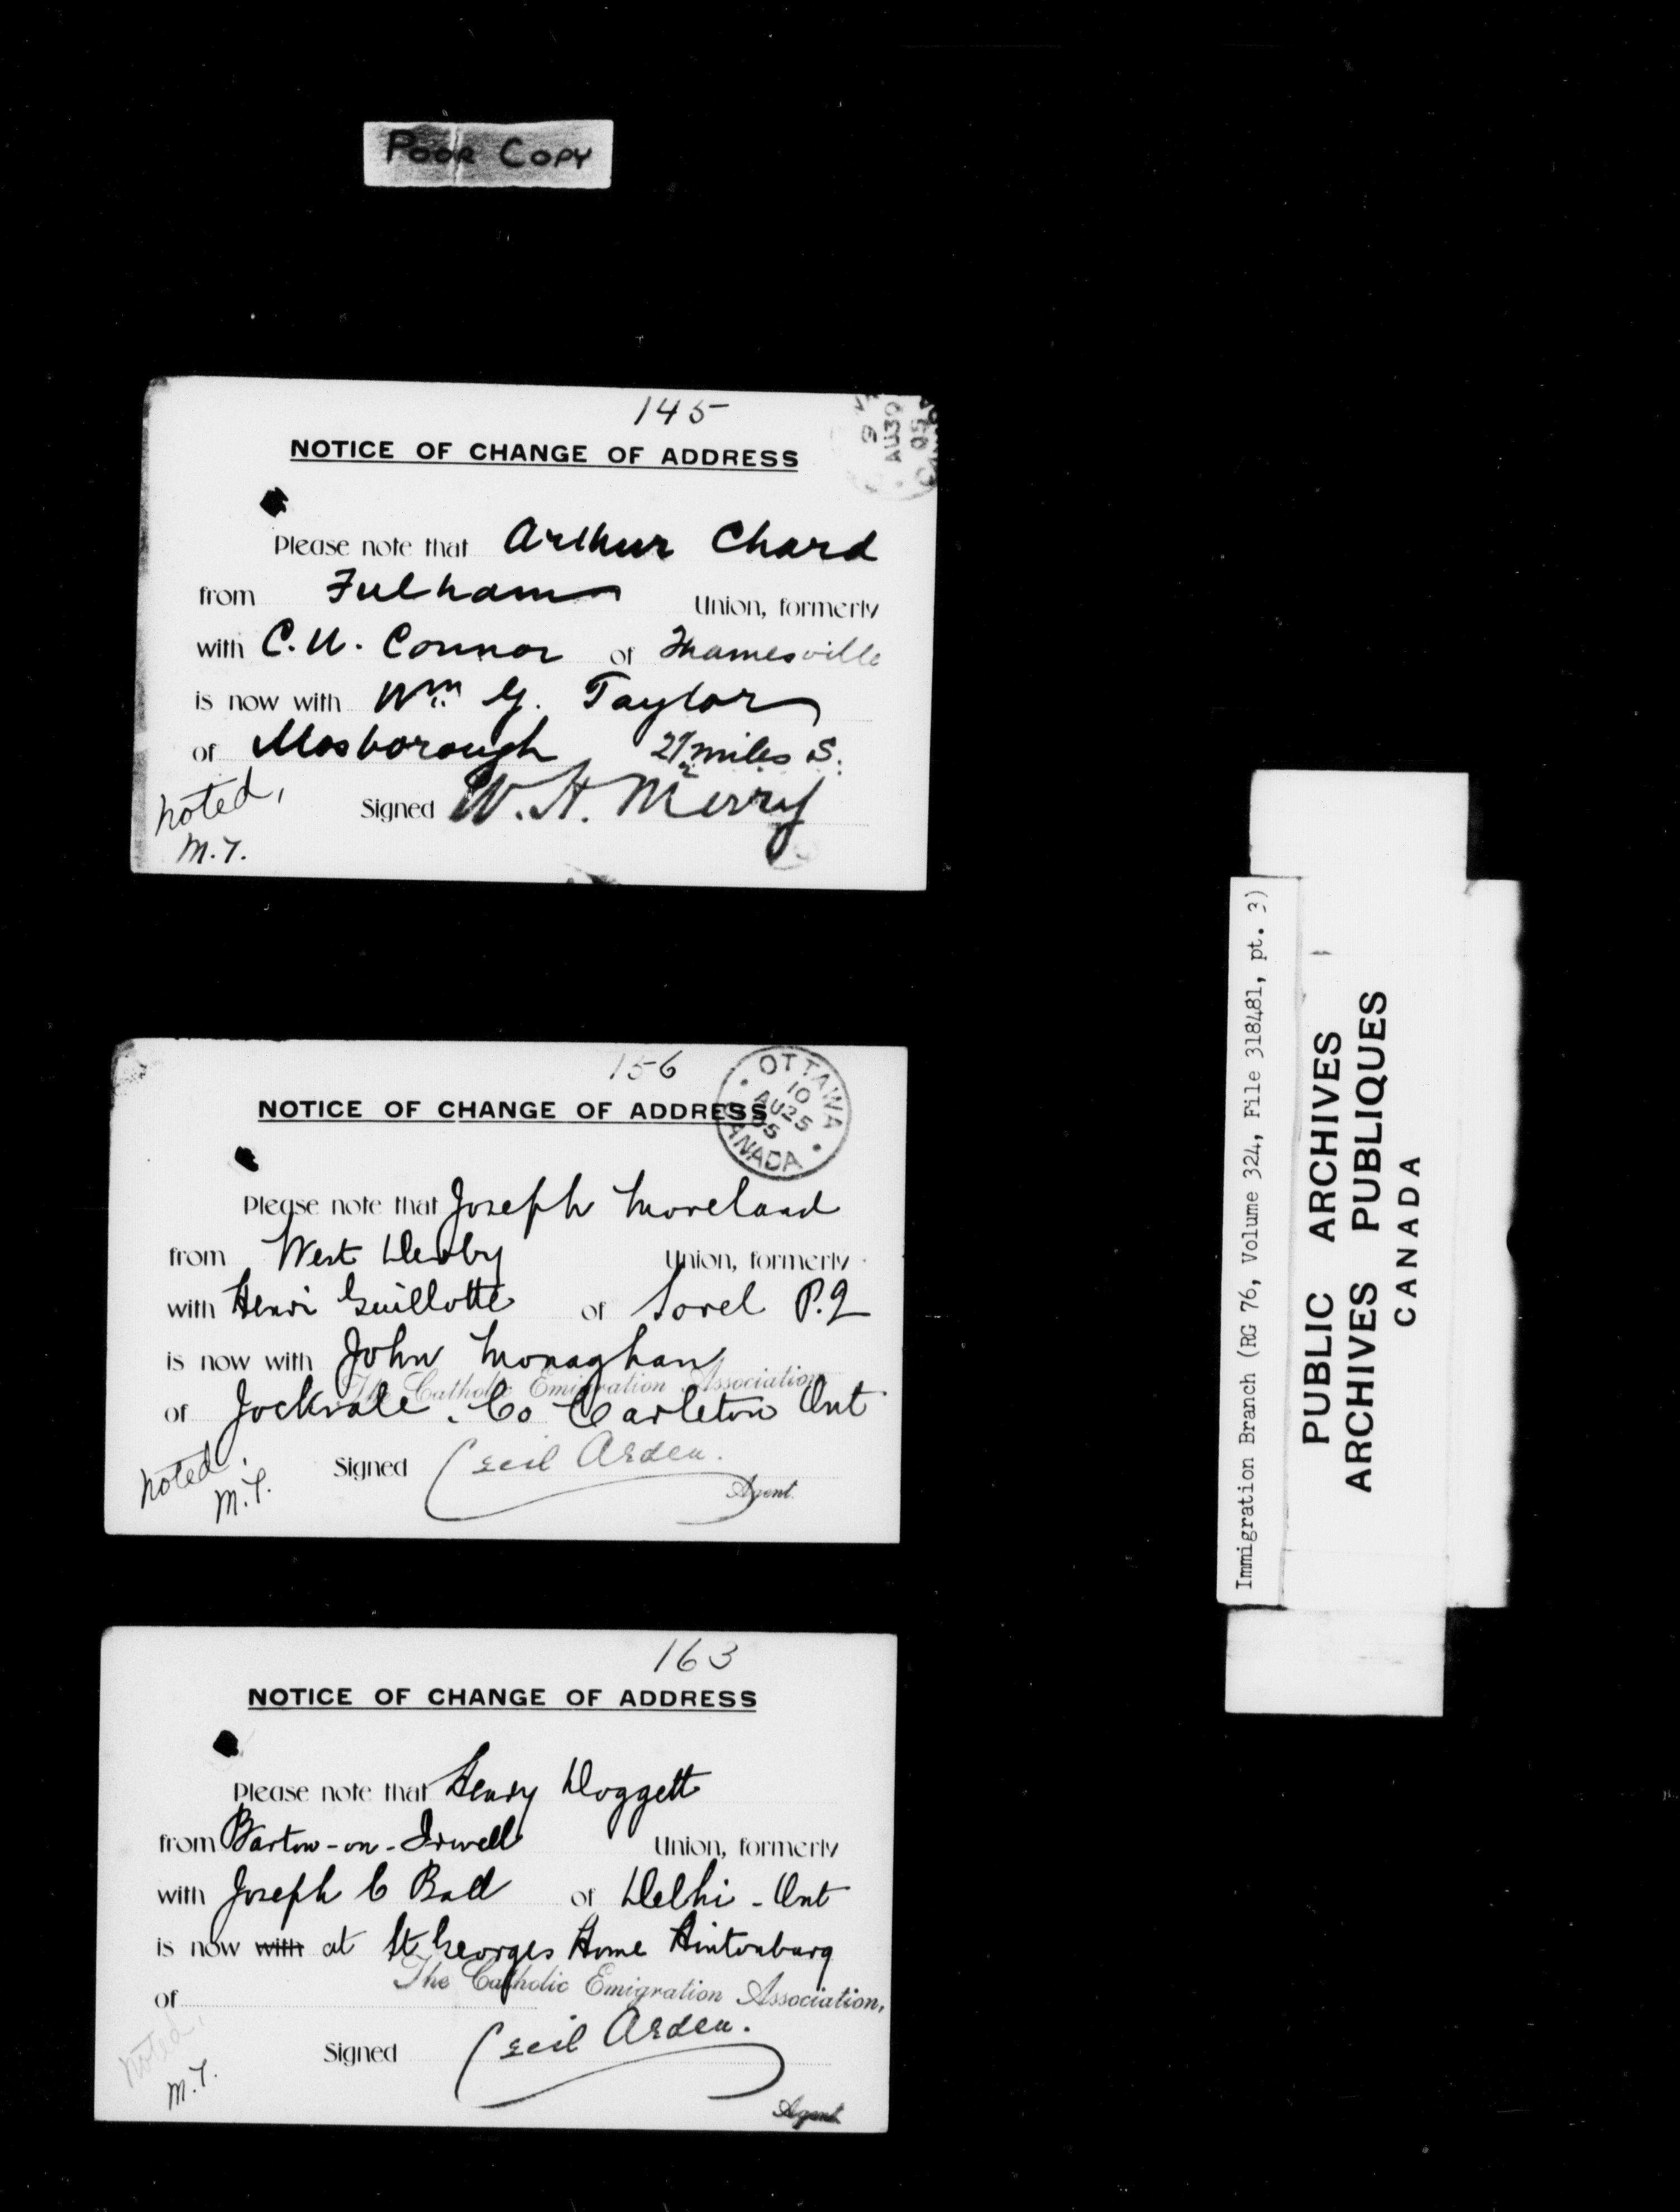 POOR COPY
145
9
AU 30
05
NOTICE OF CHANGE OF ADDRESS
Please note that Arthur Chard
from Fulham Union, formerly
with C. U. Connor of Thamesville
is now with Wm G. Taylor
of Mosborough 2½ miles S.
Signed W. H. Merry
noted,
M.T.
156
OTTAWA
10
AU 25
05
CANADA
NOTICE OF CHANGE OF ADDRESS
Please note that Joseph Moreland
from West Derby Union, formerly
with Henri Guillotte of Sorel P.Q
is now with John Monaghan
The Catholic Emigration Association
of Jockvale. Co Carleton Ont
Signed Cecil Arden.
Agent.
noted,
M.T.
163
NOTICE OF CHANGE OF ADDRESS
Please note that Henry Doggett
from Barton-on-Irwell Union, formerly
with Joseph C Ball of Delhi - Ont
is now with at St Georges Home Hintonburg
The Catholic Emigration Association,
of
Signed Cecil Arden.
Agent
noted,
M.T.
Immigration Branch (RG 76, Volume 324, File 318481, pt. 3)
PUBLIC ARCHIVES
ARCHIVES PUBLIQUES
CANADA